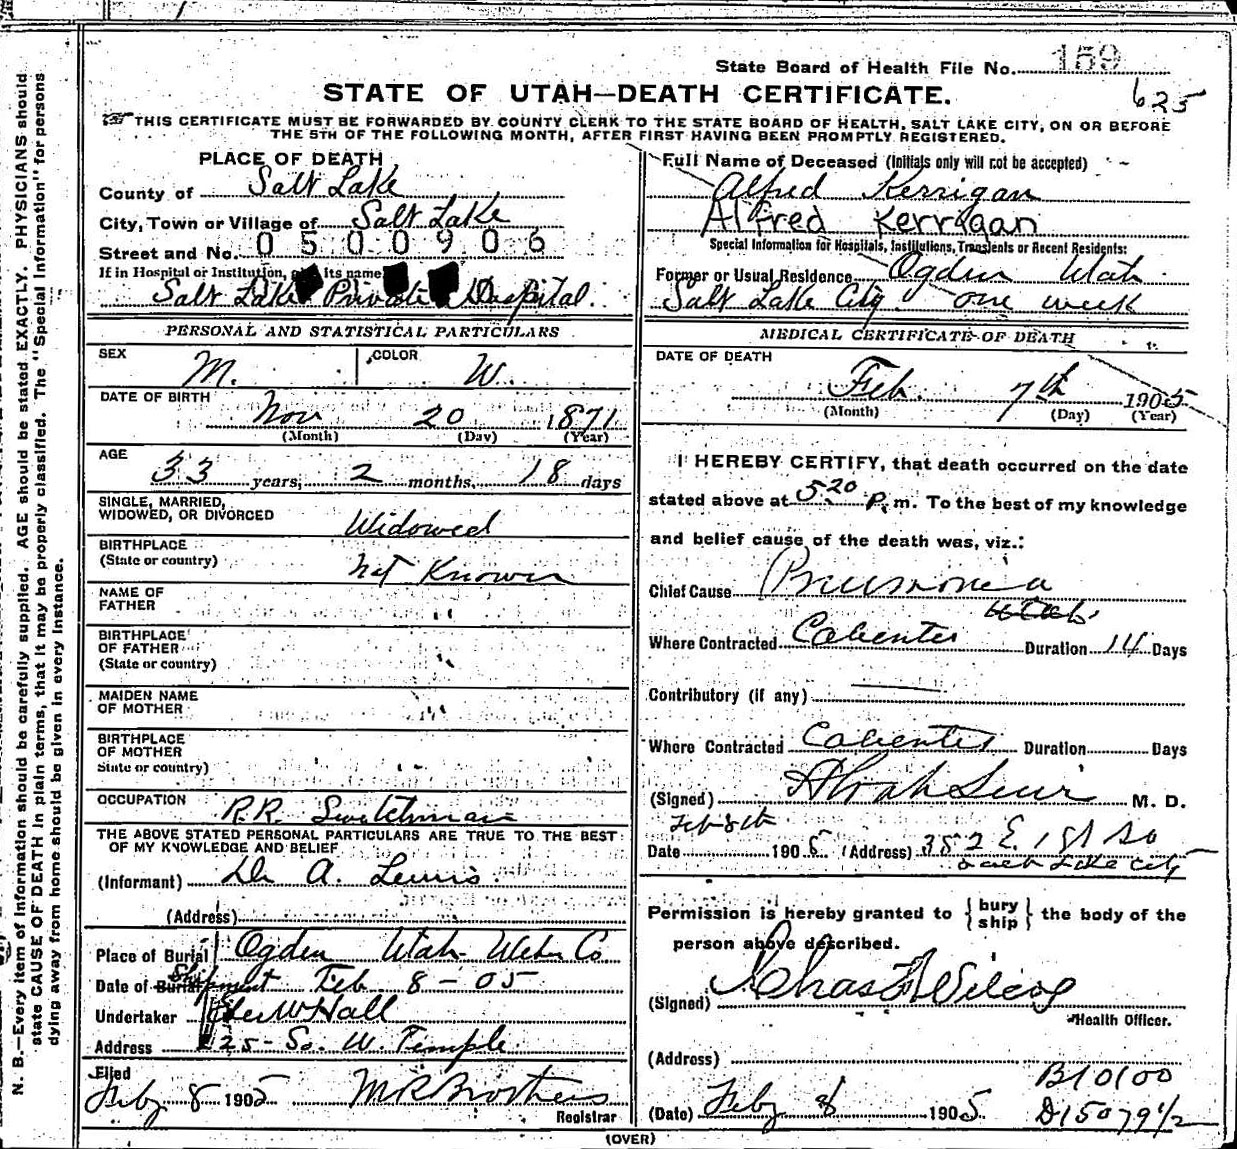 State Board of Health File No. 159
STATE OF UTAH—DEATH CERTIFICATE.
625
THIS CERTIFICATE MUST BE FORWARDED BY COUNTY CLERK TO THE STATE BOARD OF HEALTH, SALT LAKE CITY, ON OR BEFORE
THE 5TH OF THE FOLLOWING MONTH, AFTER FIRST HAVING BEEN PROMPTLY REGISTERED.
PLACE OF DEATH
County of Salt Lake
City, Town or Village of Salt Lake
Street and No. 0500906
If in Hospital or Institution, its name
Salt Lake Private Hospital.
Full Name of Deceased (Initials only will not be accepted)
Alfred Kerrigan
Alfred Kerrigan
Special Information for Hospitals, Institutions, Transients or Recent Residents:
Former or Usual Residence Ogden Utah
Salt Lake City one week
PERSONAL AND STATISTICAL PARTICULARS
SEX M. COLOR W.
DATE OF BIRTH
Nov 20 1871
(Month) (Day) (Year)
AGE
33 years, 2 months, 18 days
SINGLE, MARRIED,
WIDOWED, OR DIVORCED Widowed
BIRTHPLACE
(State or country) not Known
NAME OF
FATHER
BIRTHPLACE
OF FATHER
(State or country)
MAIDEN NAME
OF MOTHER
BIRTHPLACE
OF MOTHER
State or country)
OCCUPATION R.R. Switchman
THE ABOVE STATED PERSONAL PARTICULARS ARE TRUE TO THE BEST
OF MY KNOWLEDGE AND BELIEF
(Informant) Dr A. Lewis
(Address)
Place of Burial Ogden Utah Weber Co
Date of Burial Shipment Feb 8 - 05
Undertaker W Hall
Address 225 So. W. Temple
Filed
Feby 8 1905 M R Brothers
Registrar
MEDICAL CERTIFICATE OF DEATH
DATE OF DEATH
Feb. 7th 1905
(Month) (Day) (Year)
I HEREBY CERTIFY, that death occurred on the date
stated above at 5:20 P. m. To the best of my knowledge
and belief cause of the death was, viz.:
Chief Cause Pneumonia
Utah
Where Contracted Calientes Duration 14 Days
Contributory (if any)
Where Contracted Calientes Duration Days
(Signed) M. D.
Feb 8th
Date 1905 (Address) 352 E. 1st So
Salt Lake City
Permission is hereby granted to { bury ship } the body of the
person above described.
(Signed) Chas Wilcox
Health Officer.
(Address)
B10100
(Date) Feby 8 1905 D15079 1/2
(OVER)
N. B.—Every item of Information should be carefully supplied. AGE should be stated EXACTLY. PHYSICIANS should
state CAUSE OF DEATH in plain terms, that it may be properly classified. The "Special Information" for persons
dying away from home should be given in every instance.